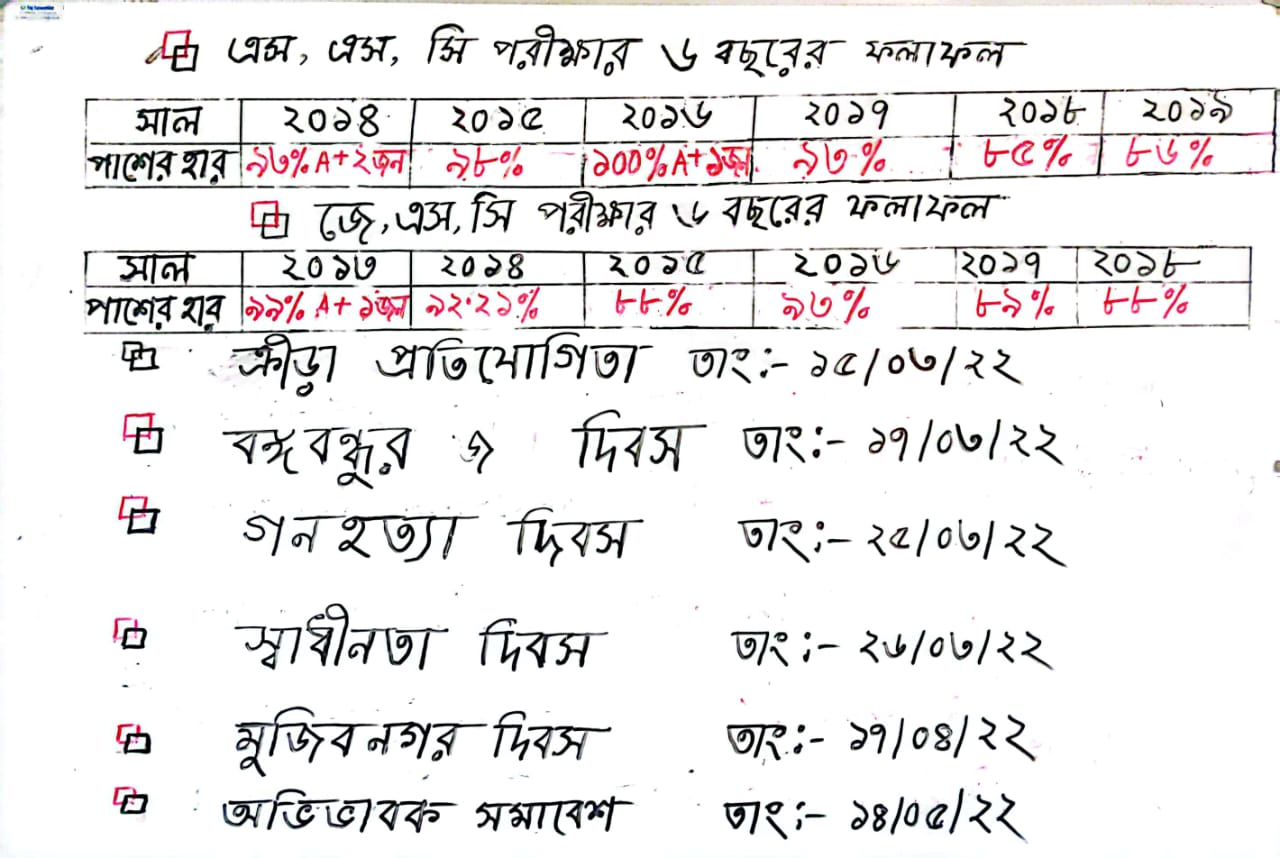 এস, এস, সি পরীক্ষার ৬ বছরের ফলাফল
সাল ২০১৪ ২০১৫ ২০১৬ ২০১৭ ২০১৮ ২০১৯
পাশের হার ৯৩% A+ ২জন ৯৮% ১০০% A+ ১জন ৯৩% ৮৫% ৮৬%
জে, এস, সি পরীক্ষার ৬ বছরের ফলাফল
সাল ২০১৩ ২০১৪ ২০১৫ ২০১৬ ২০১৭ ২০১৮
পাশের হার ৯৯% A+ ১জন ৯২.২১% ৮৮% ৯৩% ৮৯% ৮৮%
ক্রীড়া প্রতিযোগিতা তাং:- ১৫/০৩/২২
বঙ্গবন্ধুর জ দিবস তাং:- ১৭/০৩/২২
গনহত্যা দিবস তাং:- ২৫/০৩/২২
স্বাধীনতা দিবস তাং:- ২৬/০৩/২২
মুজিবনগর দিবস তাং:- ১৭/০৪/২২
অভিভাবক সমাবেশ তাং:- ১৪/০৫/২২